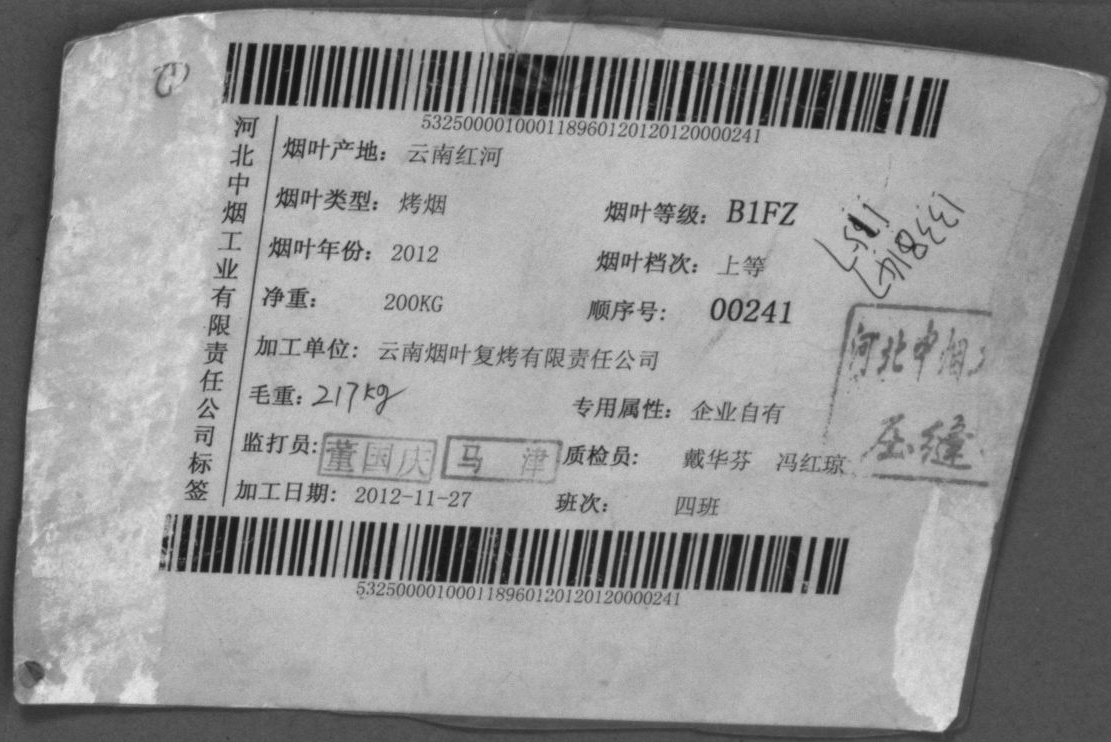 53250000100011896012012012​0000241
河北中烟工业有限责任公司标签
烟叶产地： 云南红河
烟叶类型： 烤烟 烟叶等级： B1FZ
烟叶年份： 2012 烟叶档次： 上等
净重： 200KG 顺序号： 00241
加工单位： 云南烟叶复烤有限责任公司
毛重：217kg 专用属性： 企业自有
监打员: 董国庆 马津 质检员： 戴华芬 冯红琼
加工日期： 2012-11-27 班次： 四班
河北中烟工
53250000100011896012012012​0000241